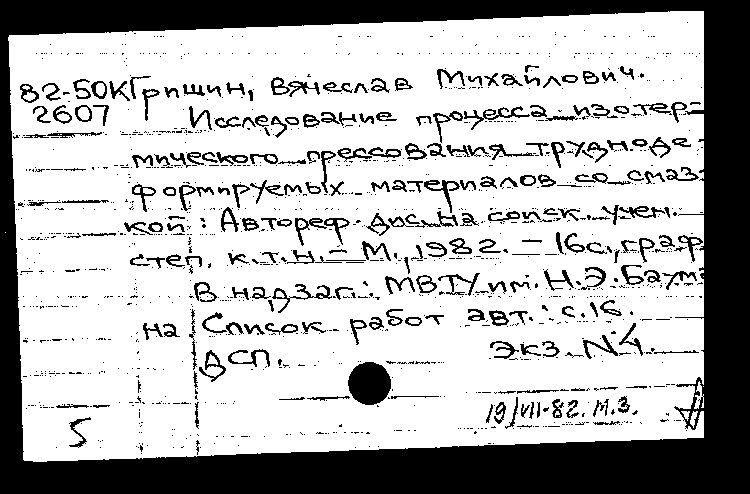 82-50К Гришин, Вячеслав Михайлович.
2607 Исследование процесса изотер-
мического прессования трудноде-
формируемых материалов со смаз-
кой: Автореф. дис. на соиск. учен.
степ. к.т.н. - М., 1982. - 16с., граф
В надзаг.: МВТУ им. Н.Э. Баума
на Список работ авт.: с.16.
ДСП. экз. N4.
19/VII-82. М.З.
5